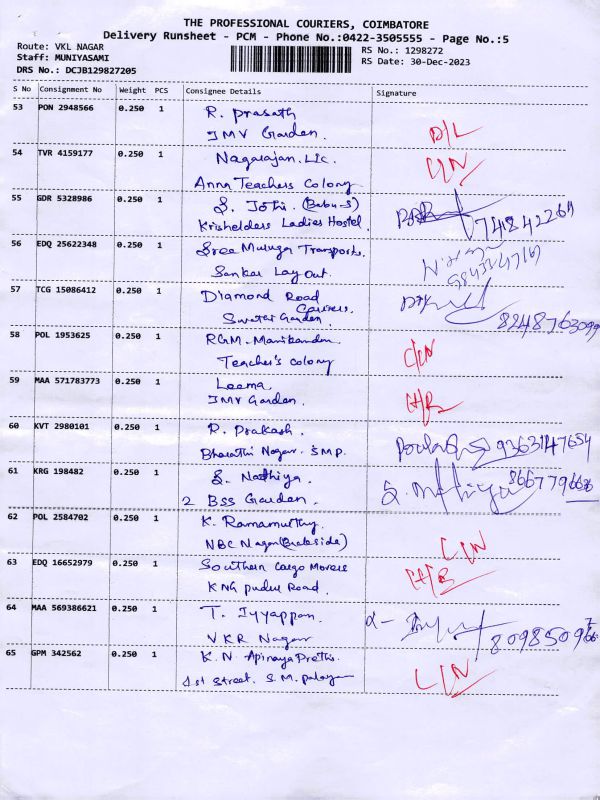 THE PROFESSIONAL COURIERS, COIMBATORE
Delivery Runsheet - PCM - Phone No.:0422-3505555 - Page No.:5
Route: VKL NAGAR
RS No.: 1298272
Staff: MUNIYASAMI
RS Date: 30-Dec-2023
DRS No.: DCJB129827205
S No Consignment No Weight PCS Consignee Details Signature
53 PON 2948566 0.250 1 R. Prasath
JMV Garden. D/L
54 TVR 4159177 0.250 1 Nagarajan. Llc. C/N
Anna Teachers Colony
55 GDR 5328986 0.250 1 S. Jothi. (Babu-S)
Krishelders Ladies Hostel. 74842264
56 EDQ 25622348 0.250 1 Sree Muluga Transports.
Sankar Lay Out.
57 TCG 15086412 0.250 1 Diamond Road
Couriers.
Sweater Garden. 8248763099
58 POL 1953625 0.250 1 RGM. Manikandan
Teacher's colony C/N
59 MAA 571783773 0.250 1 Leema.
JMV Garden. H/R
60 KVT 2980101 0.250 1 R. Prakash.
Bharathi Nagar. SMP. 9363147654
61 KRG 198482 0.250 1 S. Nathiya. 8667796626
2 Bss Garden. S. Nathiya
62 POL 2584702 0.250 1 K. Ramamurthy.
NBC Nagar (Backside) L/N
63 EDQ 16652979 0.250 1 Southern Cargo Movers
KNG pudur Road. H/B
64 MAA 569386621 0.250 1 T. Iyyappan.
VKR Nagar
65 GPM 342562 0.250 1 K.N. Apinaya Prethi.
1st street. S.M. palayam L/N